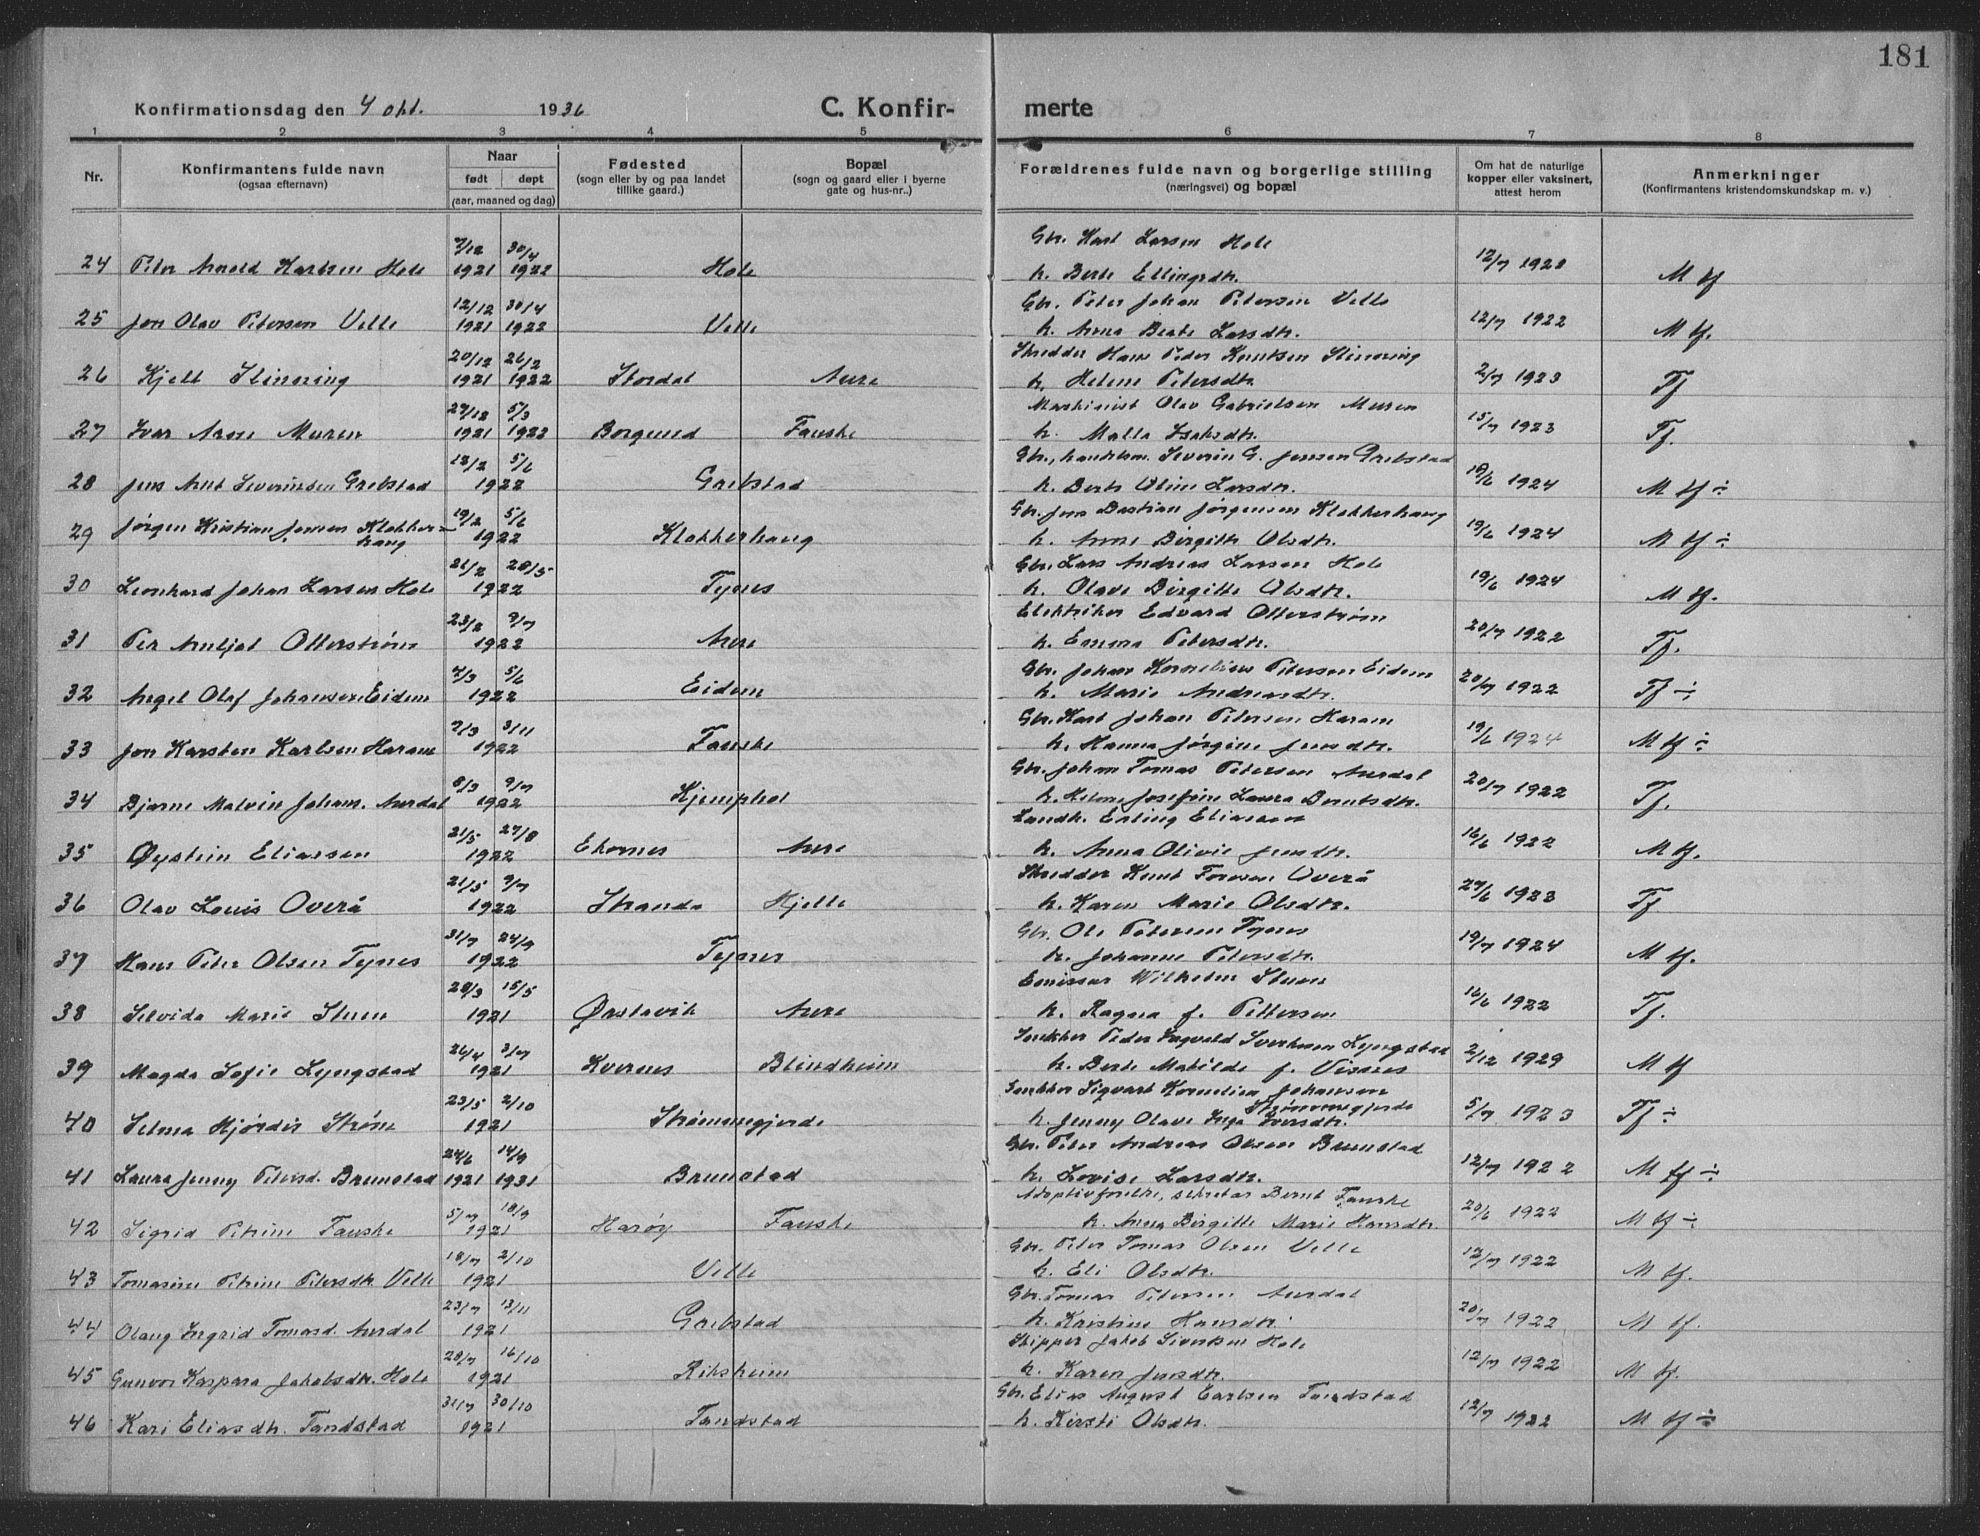 181
Konfirmationsdag den 4 okt. 1936 C. Konfir- merte
1 2 3 4 5 6 7 8
Nr. Konfirmantens fulde navn (ogsaa efternavn) Naar født døpt (aar, maaned og dag) Fødested (sogn eller by og paa landet tillike gaard.) Bopæl (sogn og gaard eller i byerne gate og hus-nr..) Forældrenes fulde navn og borgerlige stilling (næringsvei) og bopæl Om hat de naturlige kopper eller vaksinert, attest herom Anmerkninger (Konfirmantens kristendomskundskap m. v.)
7/12 30/4 Gbr. Karl Larsen Hole
24 Peter Arnold Karlsen Hole 1921 1922 Hole h. Berte Ellingsdtr. 12/7 1928 M tf
12/12 30/4 Gbr. Peter Johan Petersen Velle
25 Jon Olav Petersen Velle 1921 1922 Velle h. Anna Beate Larsdtr. 12/7 1922 M tf.
20/12 26/2 Skredder Hans Peder Knutsen
26 Kjell 1921 1922 Stordal Aure h. Helene Petersdtr. 2/7 1923 Tf
27/12 5/3 Maskinist Olav Gabrielsen Muren
27 Ivar Arne Muren 1921 1922 Borgund Fauske h. Malla Isaksdtr. 15/7 1923 Tf.
12/2 5/6 Gbr., Severin G. Jensen Grebstad
28 Jens Arnt Severinsen Grebstad 1922 Grebstad h. Berte Oline Larsdtr. 19/6 1924 M tf ÷
19/2 5/6 Gbr. Jens Bastian Jørgensen Klokkerhaug
29 Jørgen Kristian Jensen Klokker-
haug 1922 Klokkerhaug h. Anne Birgitte Olsdtr. 19/6 1924 M tf ÷
21/2 28/5 Gbr. Lars Andreas Larsen Hole
30 Leonhard Johan Larsen Hole 1922 Tynes h. Olave Birgitte Olsdtr. 19/6 1924 M tf.
23/2 9/7 Elektriker Edvard Otterstrøm
31 Per Arnljot Otterstrøm 1922 Aure h. Emma Petersdtr. 20/7 1922 Tf.
4/3 5/6 Gbr. Johan Kornelius Petersen Eidem
32 Angel Olaf Johansen Eidem 1922 Eidem h. Marie Andreasdtr. 20/7 1922 Tf ÷
7/3 3/11 Gbr. Karl Johan Petersen Haram
33 Jon Karsten Karlsen Haram 1922 Fauske h. Hanna Jørgine Jensdtr. 19/6 1924 M tf ÷
8/3 9/7 Gbr. Johan Tomas Petersen Aurdal
34 Bjarne Malvin Johans. Aurdal 1922 Kjemphol h. Helene Josefine Laura Berntsdtr. 20/7 1922 Tf.
21/5 27/8 Landh. Erling Eliassen
35 Øystein Eliassen 1922 Ekornes Aure h. Anna Olivie Jensdtr. 16/6 1922 M tf.
21/5 9/7 Skredder Knut Overå
36 Olav Louis Overå 1922 Stranda Kjelle h. Karen Marie Olsdtr. 27/6 1923 Tf.
31/7 24/9 Gbr. Ole Petersen Tynes
37 Hans Peter Olsen Tynes 1922 Tynes h. Johanne Petersdtr. 19/7 1924 M tf.
28/3 15/5 Emissær Wilhelm Stuen
38 Selvida Marie Stuen 1921 Ørstavik Aure h. Ragna f. Pettersen 16/6 1922 Tf.
26/4 3/7 Snekker Peder Ingvald Syverksen Lyngstad
39 Magda Sofie Lyngstad 1921 Kvernes Blindheim h. Berte Matilde f. Visnes 2/12 1929 M tf
23/5 2/10 Snekker Sigvart Kornelius Johansen
Strømmegjerde
40 Selma Hjørdis Strøm 1921 Strømmegjerde h. Jenny Olave Inga Iversdtr. 5/7 1923 Tf ÷
24/6 14/9 Gbr. Peter Andreas Olsen Brunstad
41 Laura Jenny Petersd. Brunstad 1921 1931 Brunstad h. Lovise Larsdtr. 12/7 1922 M tf ÷
5/7 18/9 Adoptivforeldre, sekretær Bernt Fauske
42 Sigrid Petrine Fauske 1921 Harøy Fauske h. Anna Birgitte Marie Hansdtr. 20/6 1922 M tf ÷
18/7 2/10 Gbr. Peter Tomas Olsen Velle
43 Tomasine Petrine Petersdtr. Velle 1921 Velle h. Eli Olsdtr. 12/7 1922 M tf.
23/7 13/11 Gbr. Tomas Petersen Aurdal
44 Olaug Ingrid Tomasd. Aurdal 1921 Grebstad h. Kristine Hansdtr. 20/7 1922 M tf.
28/7 16/10 Skipper Jakob Sivertsen Hole
45 Gunvor Kaspara Jakobsdtr. Hole 1921 Riksheim h. Karen Jensdtr. 12/7 1922 M tf.
31/7 30/10 Gbr. Elias August Carlsen Tandstad
46 Kari Eliasdtr. Tandstad 1921 Tandstad h. Kirsti Olsdtr. 12/7 1922 M tf ÷